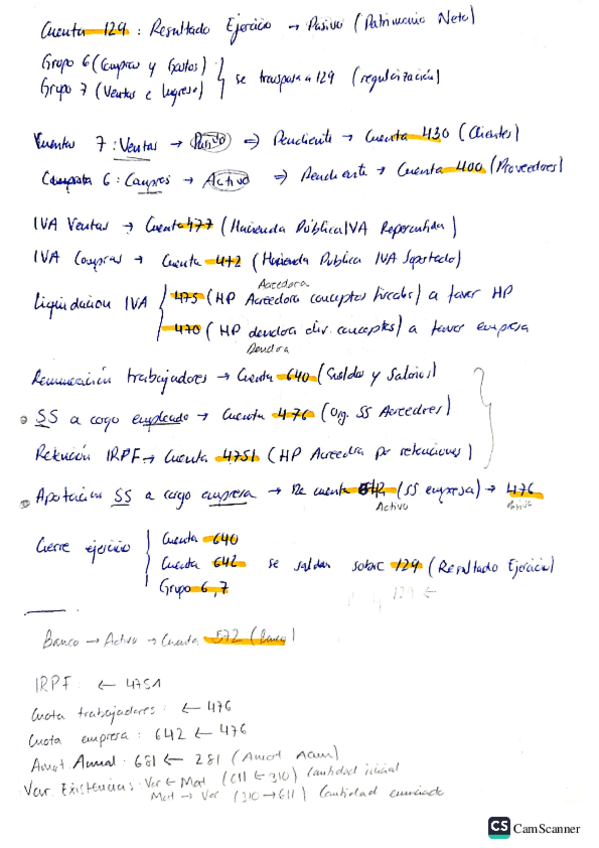 Cuenta 129 : Resultado Ejercicio → Pasivo (Patrimonio Neto)
Grupo 6 (Compras y Gastos)
Grupo 7 (Ventas e Ingreso) } se traspasa a 129 (regularización)
Cuentas 7 : Ventas → Pasivo ⇒ Pendiente → Cuenta 430 (Clientes)
6 : Compras → Activo ⇒ Pendiente → Cuenta 400 (Proveedores)
IVA Ventas → Cuenta 477 (Hacienda Pública IVA Repercutido)
IVA Compras → Cuenta 472 (Hacienda Publica IVA Soportado)
Acreedora
Liquidacion IVA { 475 (HP Acreedora conceptos fiscales) a favor HP
470 (HP deudora div. conceptos) a favor empresa
Deudora
Remuneración trabajadores → Cuenta 640 (Sueldos y Salarios)
SS a cargo empleado → Cuenta 476 (Org. SS Acreedores)
Retención IRPF → Cuenta 4751 (HP Acreedra por retenciones)
Aportacion SS a cargo empresa → cuenta (SS empresa) → 476
Activo Pasivo
Cierre ejercicio { Cuenta 640
Cuenta 642 se saldan sobre 129 (Resultado Ejercicio)
Grupo 6,7
129 ←
Banco → Activo → Cuenta 572 (Banco)
IRPF : ← 4751
Cuota trabajadores : ← 476
Cuota empresa : 642 ← 476
Amort Anual : 681 ← 281 (Amort Acum)
Var. Existencias : Var ← Mat (611 ← 310) Cantidad inicial
Mat → Var (310 → 611) Cantidad
CS CamScanner